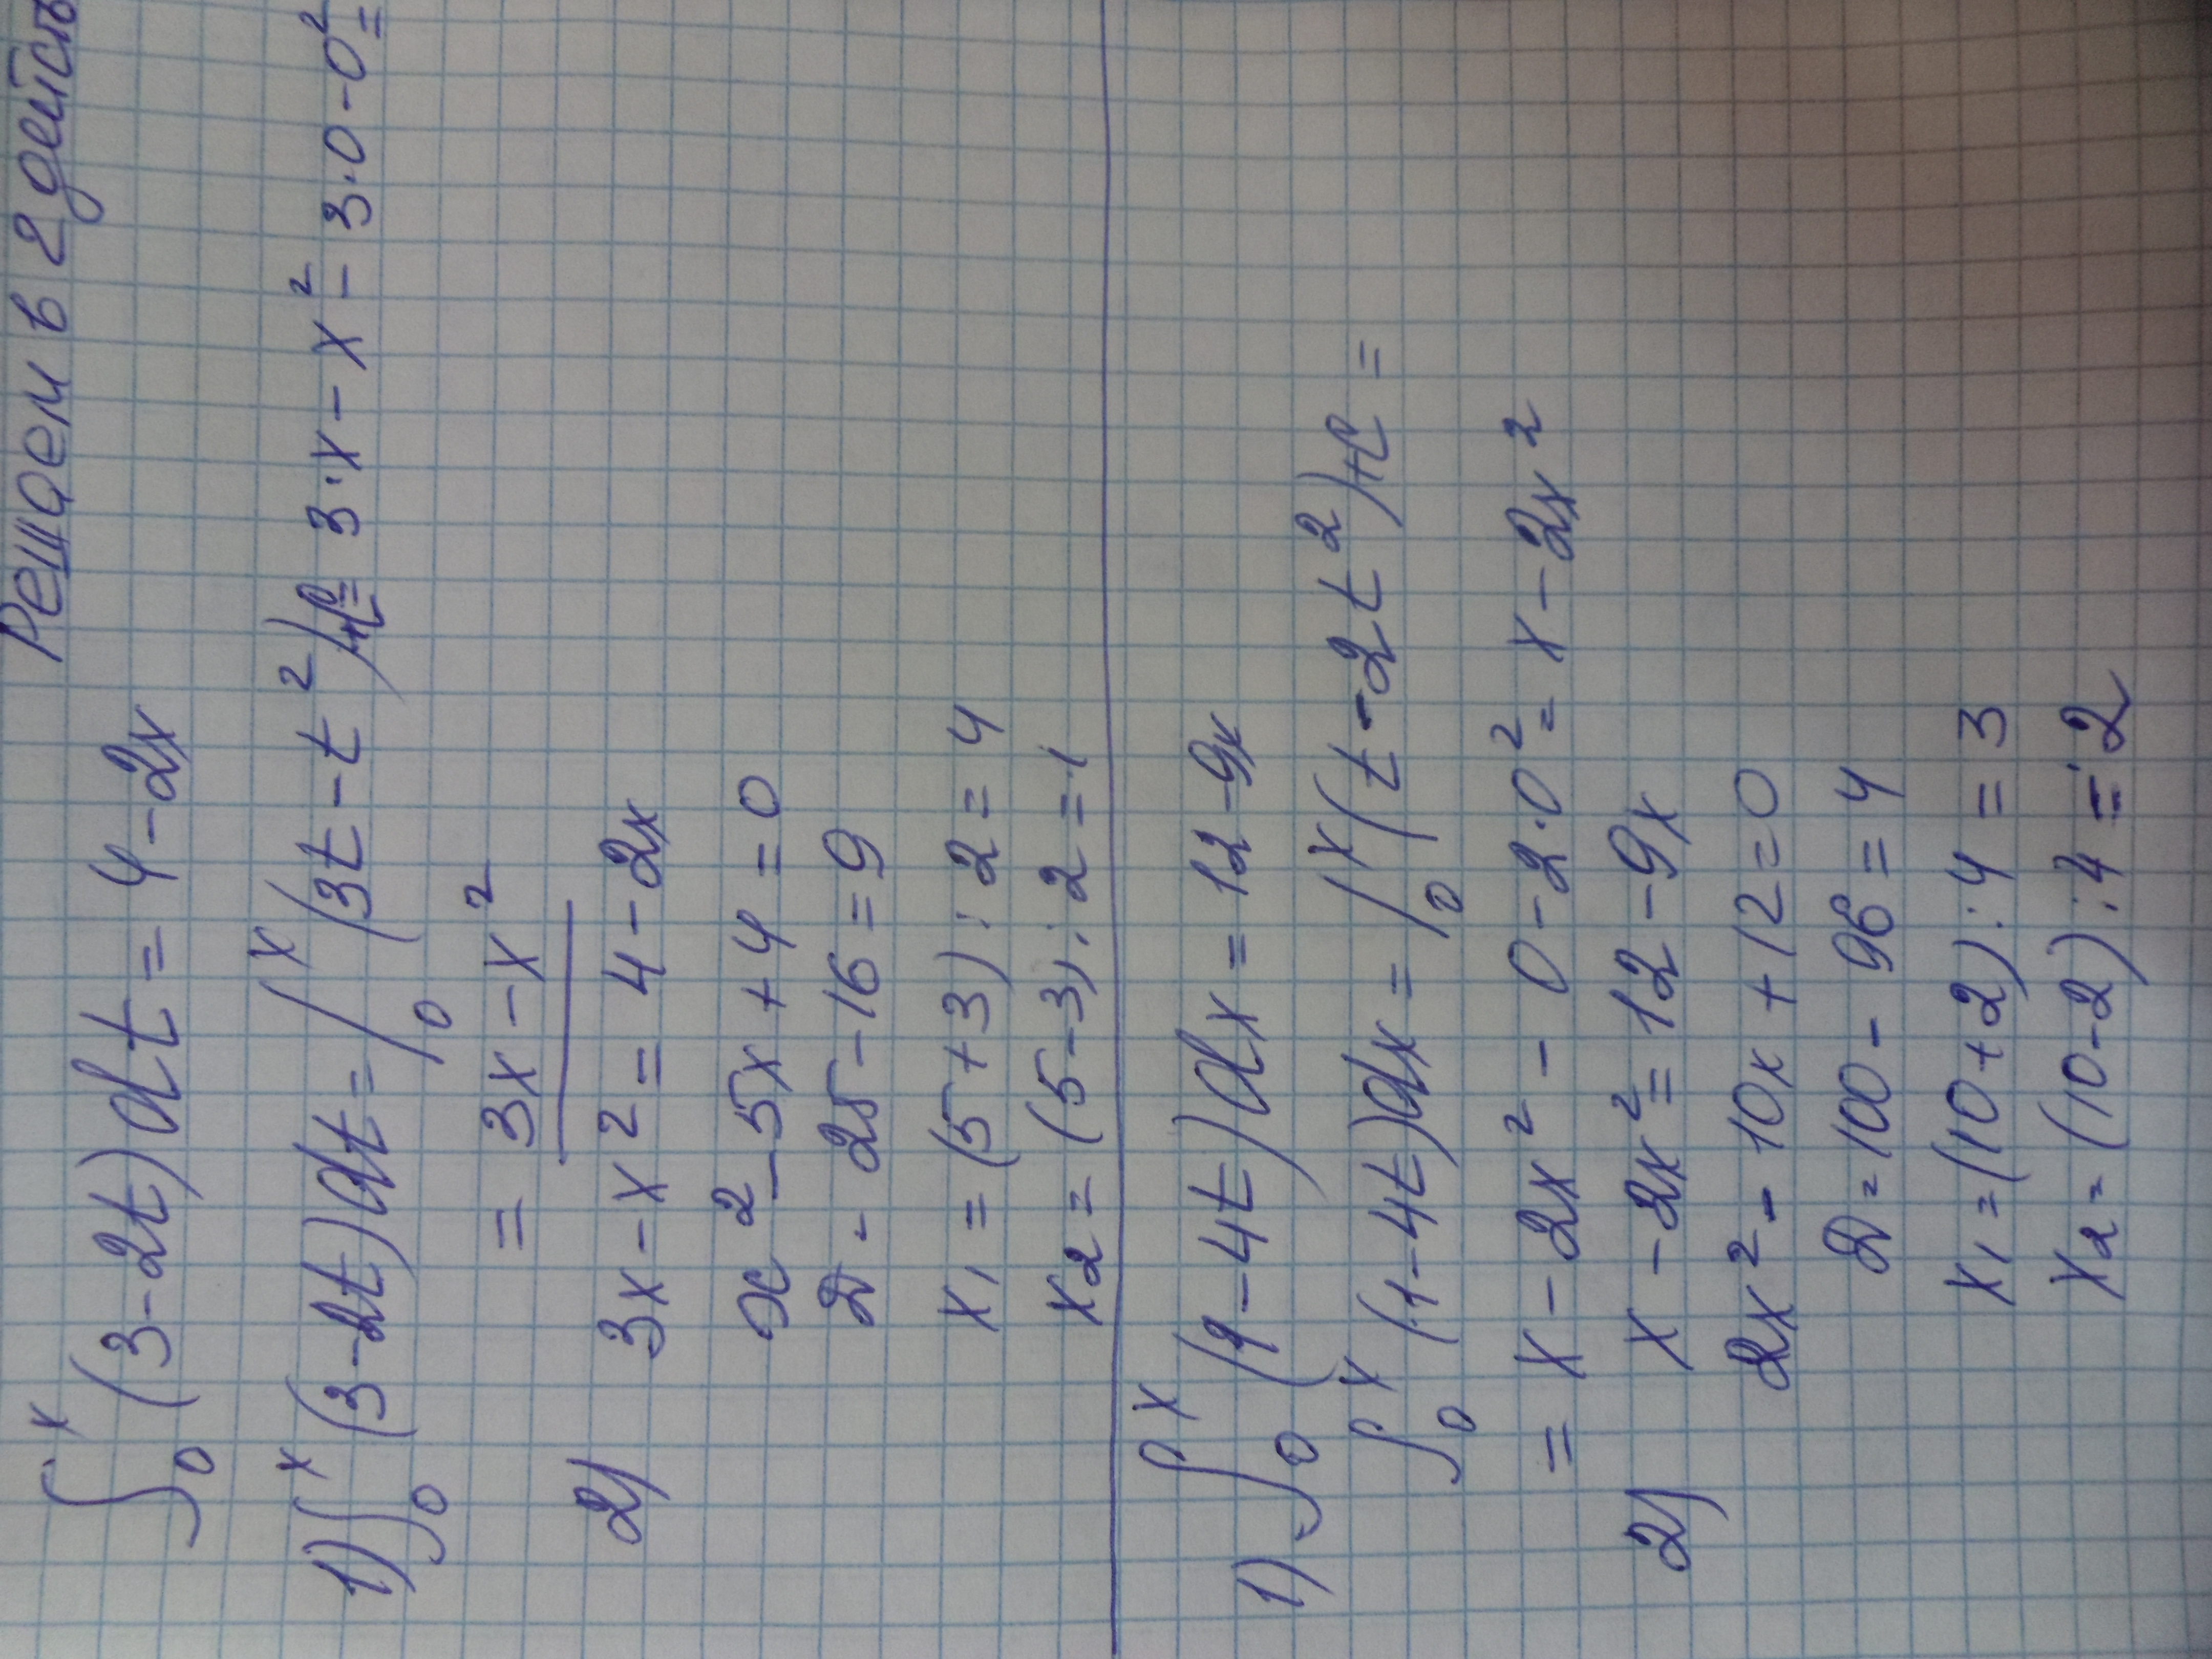 ∫₀ˣ (3-2t)dt = 4-2x Решаем в 2 дейст
1) ∫₀ˣ (3-2t)dt = /₀ˣ (3t-t²)+C = 3·x-x²-3·0-0² =
= 3x-x²
2) 3x-x² = 4-2x
x²-5x+4=0
D - 25-16=9
x₁ = (5+3):2=4
x₂ = (5-3):2=1
1) ∫₀ˣ (1-4t)dx = 12-9x
∫₀ˣ (1-4t)dx = /₀ˣ (t-2t²)+C =
= x-2x² - 0-2·0² = x-2x²
2) x-2x² = 12-9x
2x²-10x+12=0
D=100-96=4
x₁=(10+2):4=3
x₂=(10-2):4=2